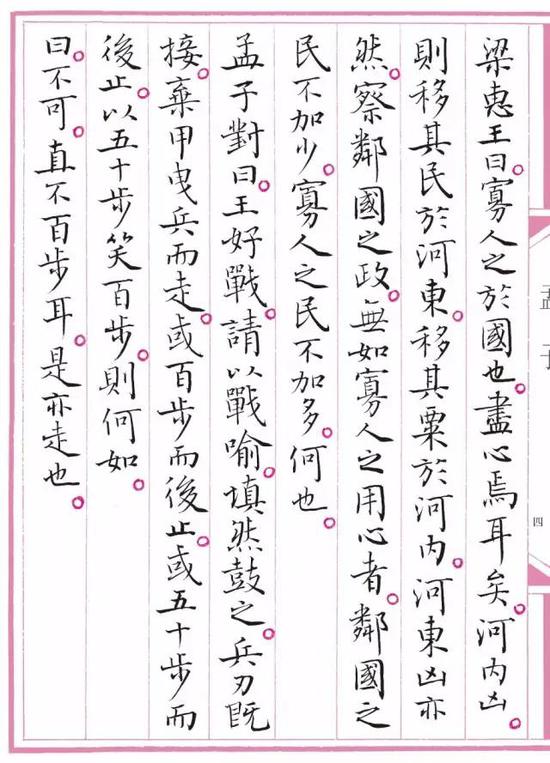 孟子
四
梁惠王曰。寡人之於國也。盡心焉耳矣。河內凶。
則移其民於河東。移其粟於河內。河東凶亦
然。察鄰國之政。無如寡人之用心者。鄰國之
民不加少。寡人之民不加多。何也。
孟子對曰。王好戰。請以戰喻。填然鼓之。兵刃既
接。棄甲曳兵而走。或百步而後止。或五十步而
後止。以五十步笑百步。則何如。
曰。不可。直不百步耳。是亦走也。